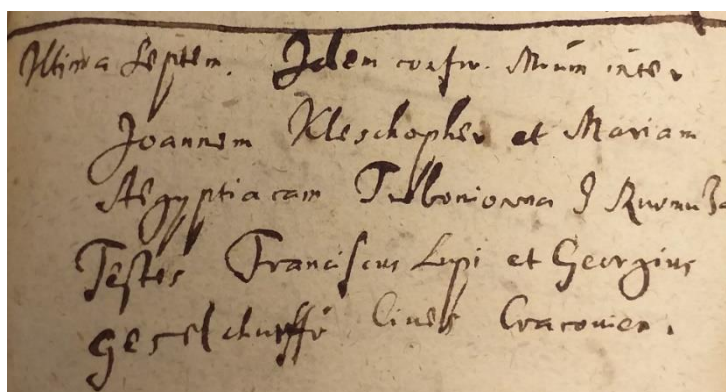 Ultima Septem. Idem confir. Mrium inter
Joannem Kleschopher et Mariam
Aegyptiacam
Testes Franciscus Lupi et Georgius
Cives Cracovien.